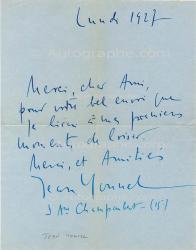 Lundi 1927
Merci, cher Ami,
pour votre bel envoi que
je lirai à mes premiers
moments de loisir
Merci, et Amitiés
Jean Yonnel
3 Ave Champaubert - (15)
JEAN YONNEL
Autographe.com